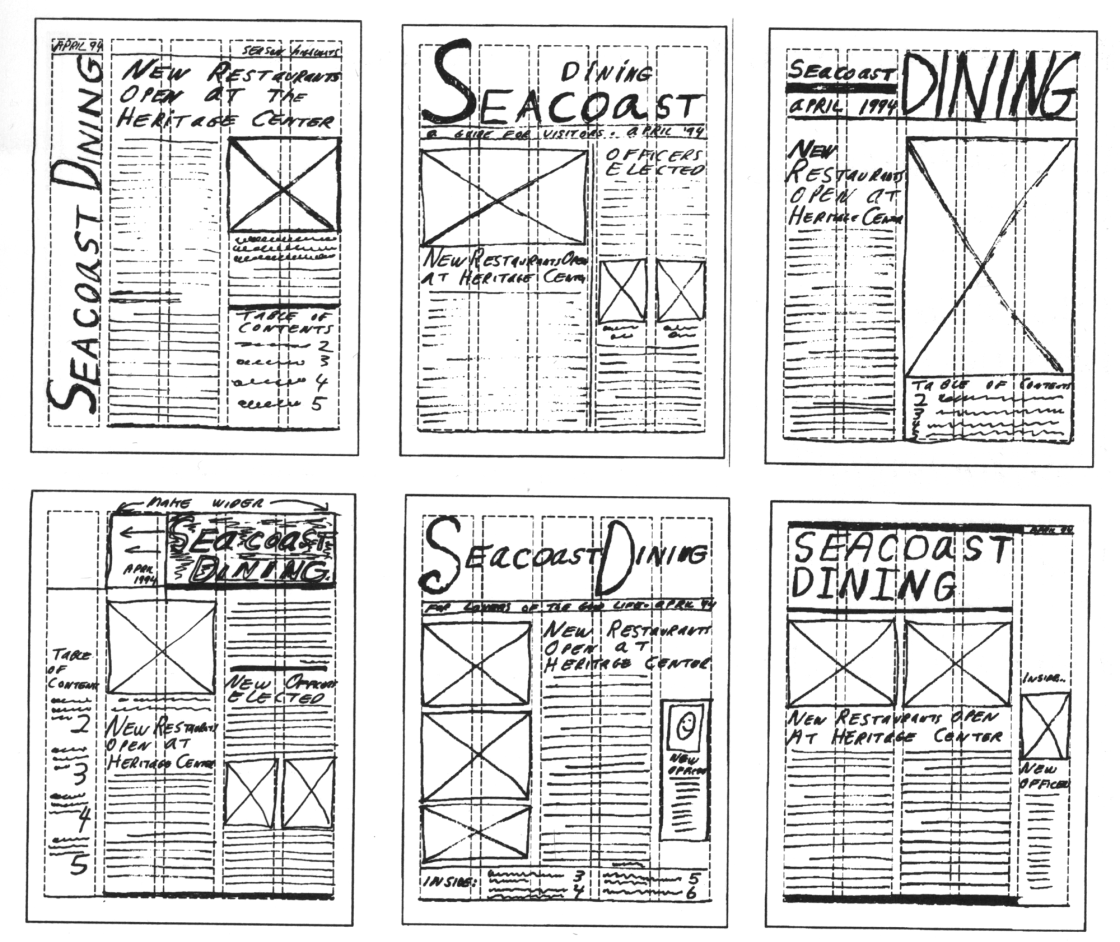 APRIL 94
SEACOAST DINING
NEW RESTAURANTS
OPEN AT THE
HERITAGE CENTER
TABLE OF
CONTENTS
2
3
4
5
DINING
SEACOAST
A GUIDE FOR VISITORS.. APRIL '94
OFFICERS
ELECTED
NEW RESTAURANTS OPEN
AT HERITAGE CENTER
SEACOAST
APRIL 1994
DINING
NEW
RESTAURANTS
OPEN AT
HERITAGE CENTER
TABLE OF CONTENTS
2
3
MAKE WIDER
SEACOAST
DINING
APRIL
1994
TABLE
OF
CONTENTS
2
3
4
5
NEW RESTAURANTS
OPEN AT
HERITAGE CENTER
NEW OFFICERS
ELECTED
SEACOAST DINING
FOR LOVERS OF THE GOOD LIFE- APRIL 94
NEW RESTAURANTS
OPEN AT
HERITAGE CENTER
NEW
OFFICER
INSIDE:
3
4
5
6
APRIL 94
SEACOAST
DINING
NEW RESTAURANTS OPEN
AT HERITAGE CENTER
INSIDE..
NEW
OFFICER